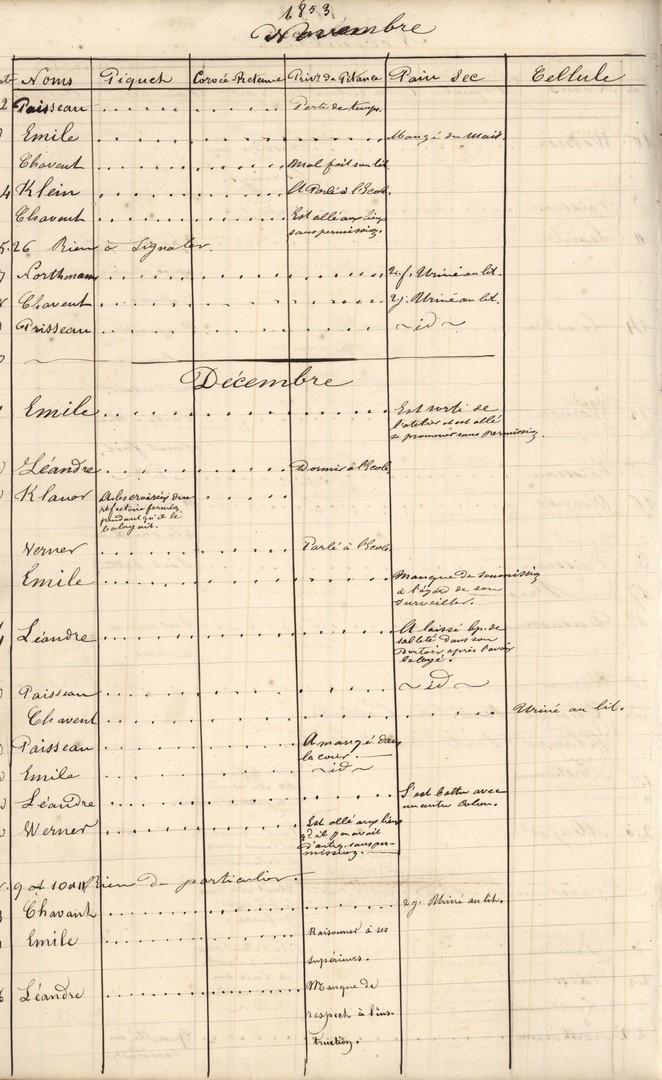 1853
Novembre
Noms Piquet Corvée-Retenue Priv.n de Pitance Pain Sec Cellule
2 Paisseau Perte de temps.
Emile Mangé du Maïs.
Chavent Mal fait son lit.
4 Klein A Parlé à l'Ecole.
Chavent Est allé aux lieux
sans permission.
5. 26 Rien à Signaler.
7 Northmann 2.f. Uriné au lit.
Chavent 2 j. Uriné au lit.
Prisseau ~ id ~
Décembre
Emile Est sorti de
l'atelier et est allé
se promener sans permission.
Léandre Dormir à l'Ecole
Klauor A les croisées du
réfectoire fermées
pendant qu'il le
balayait.
Verner Parlé à l'Ecole.
Emile Manque de soumission
à l'égard de son
surveiller.
Léandre A laissé bp. de
saleté dans son
après l'avoir
balayé.
Paisseau ~ id ~
Chavent Uriné au lit.
Paisseau A mangé dans
la cour.
Emile ~ id ~
Léandre S'est battu avec
un autre Colon.
Werner Est allé aux lieux
qd il y en avait
d'autres, sans per-
mission.
9 et 10 a 11 Rien de particulier.
Chavant 2 j. Uriné au lit.
Emile Raisonner à ses
supérieurs.
6 Léandre Manque de
respect à l'ins-
truction.